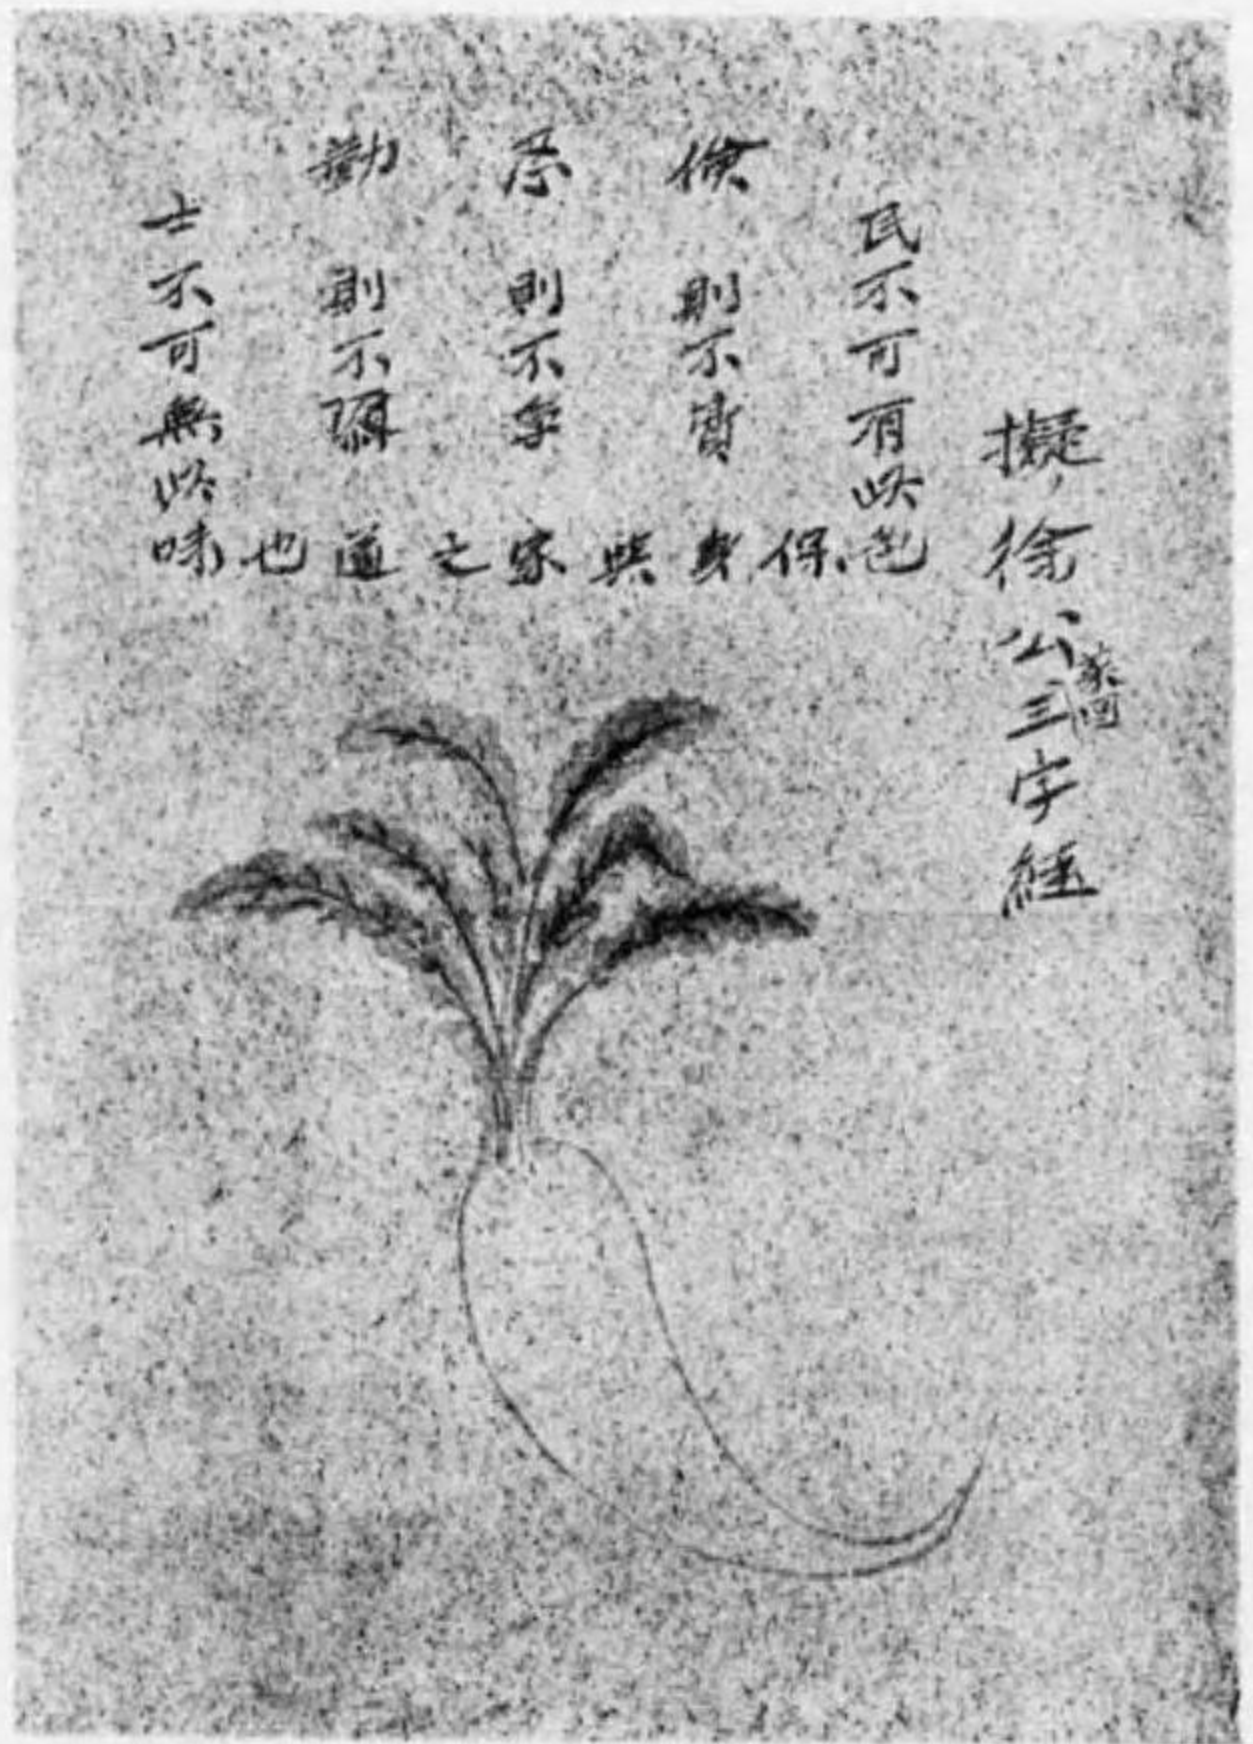 擬徐公三字經
民不可有此色
儉則不費
忍則不争
勤則不隳
保身與家之道也
士不可無此味